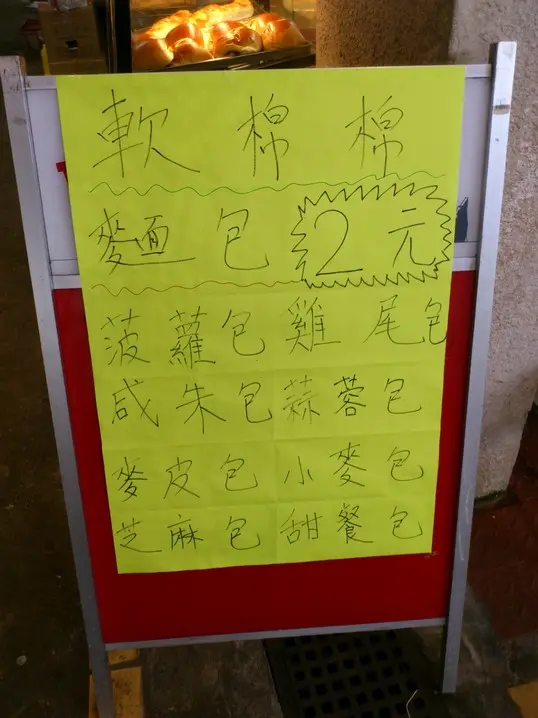 軟棉棉
麵包 2元
菠蘿包 雞尾包
咸朱包 蒜蓉包
麥皮包 小麥包
芝麻包 甜餐包